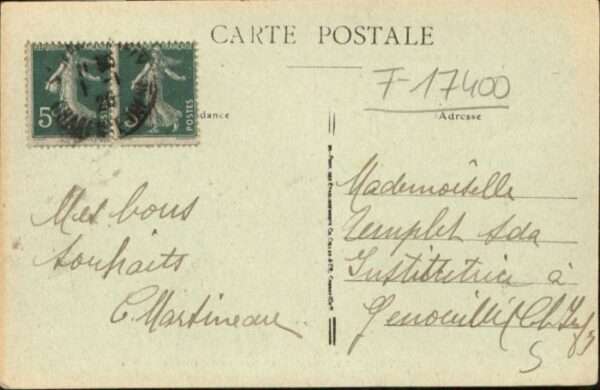 CARTE POSTALE
F-17400
Adresse
Mademoiselle
Templet Ada
Institutrice à
Genouillé (Ch Inf
Mes bons
souhaits
C Martineau
5
POSTES